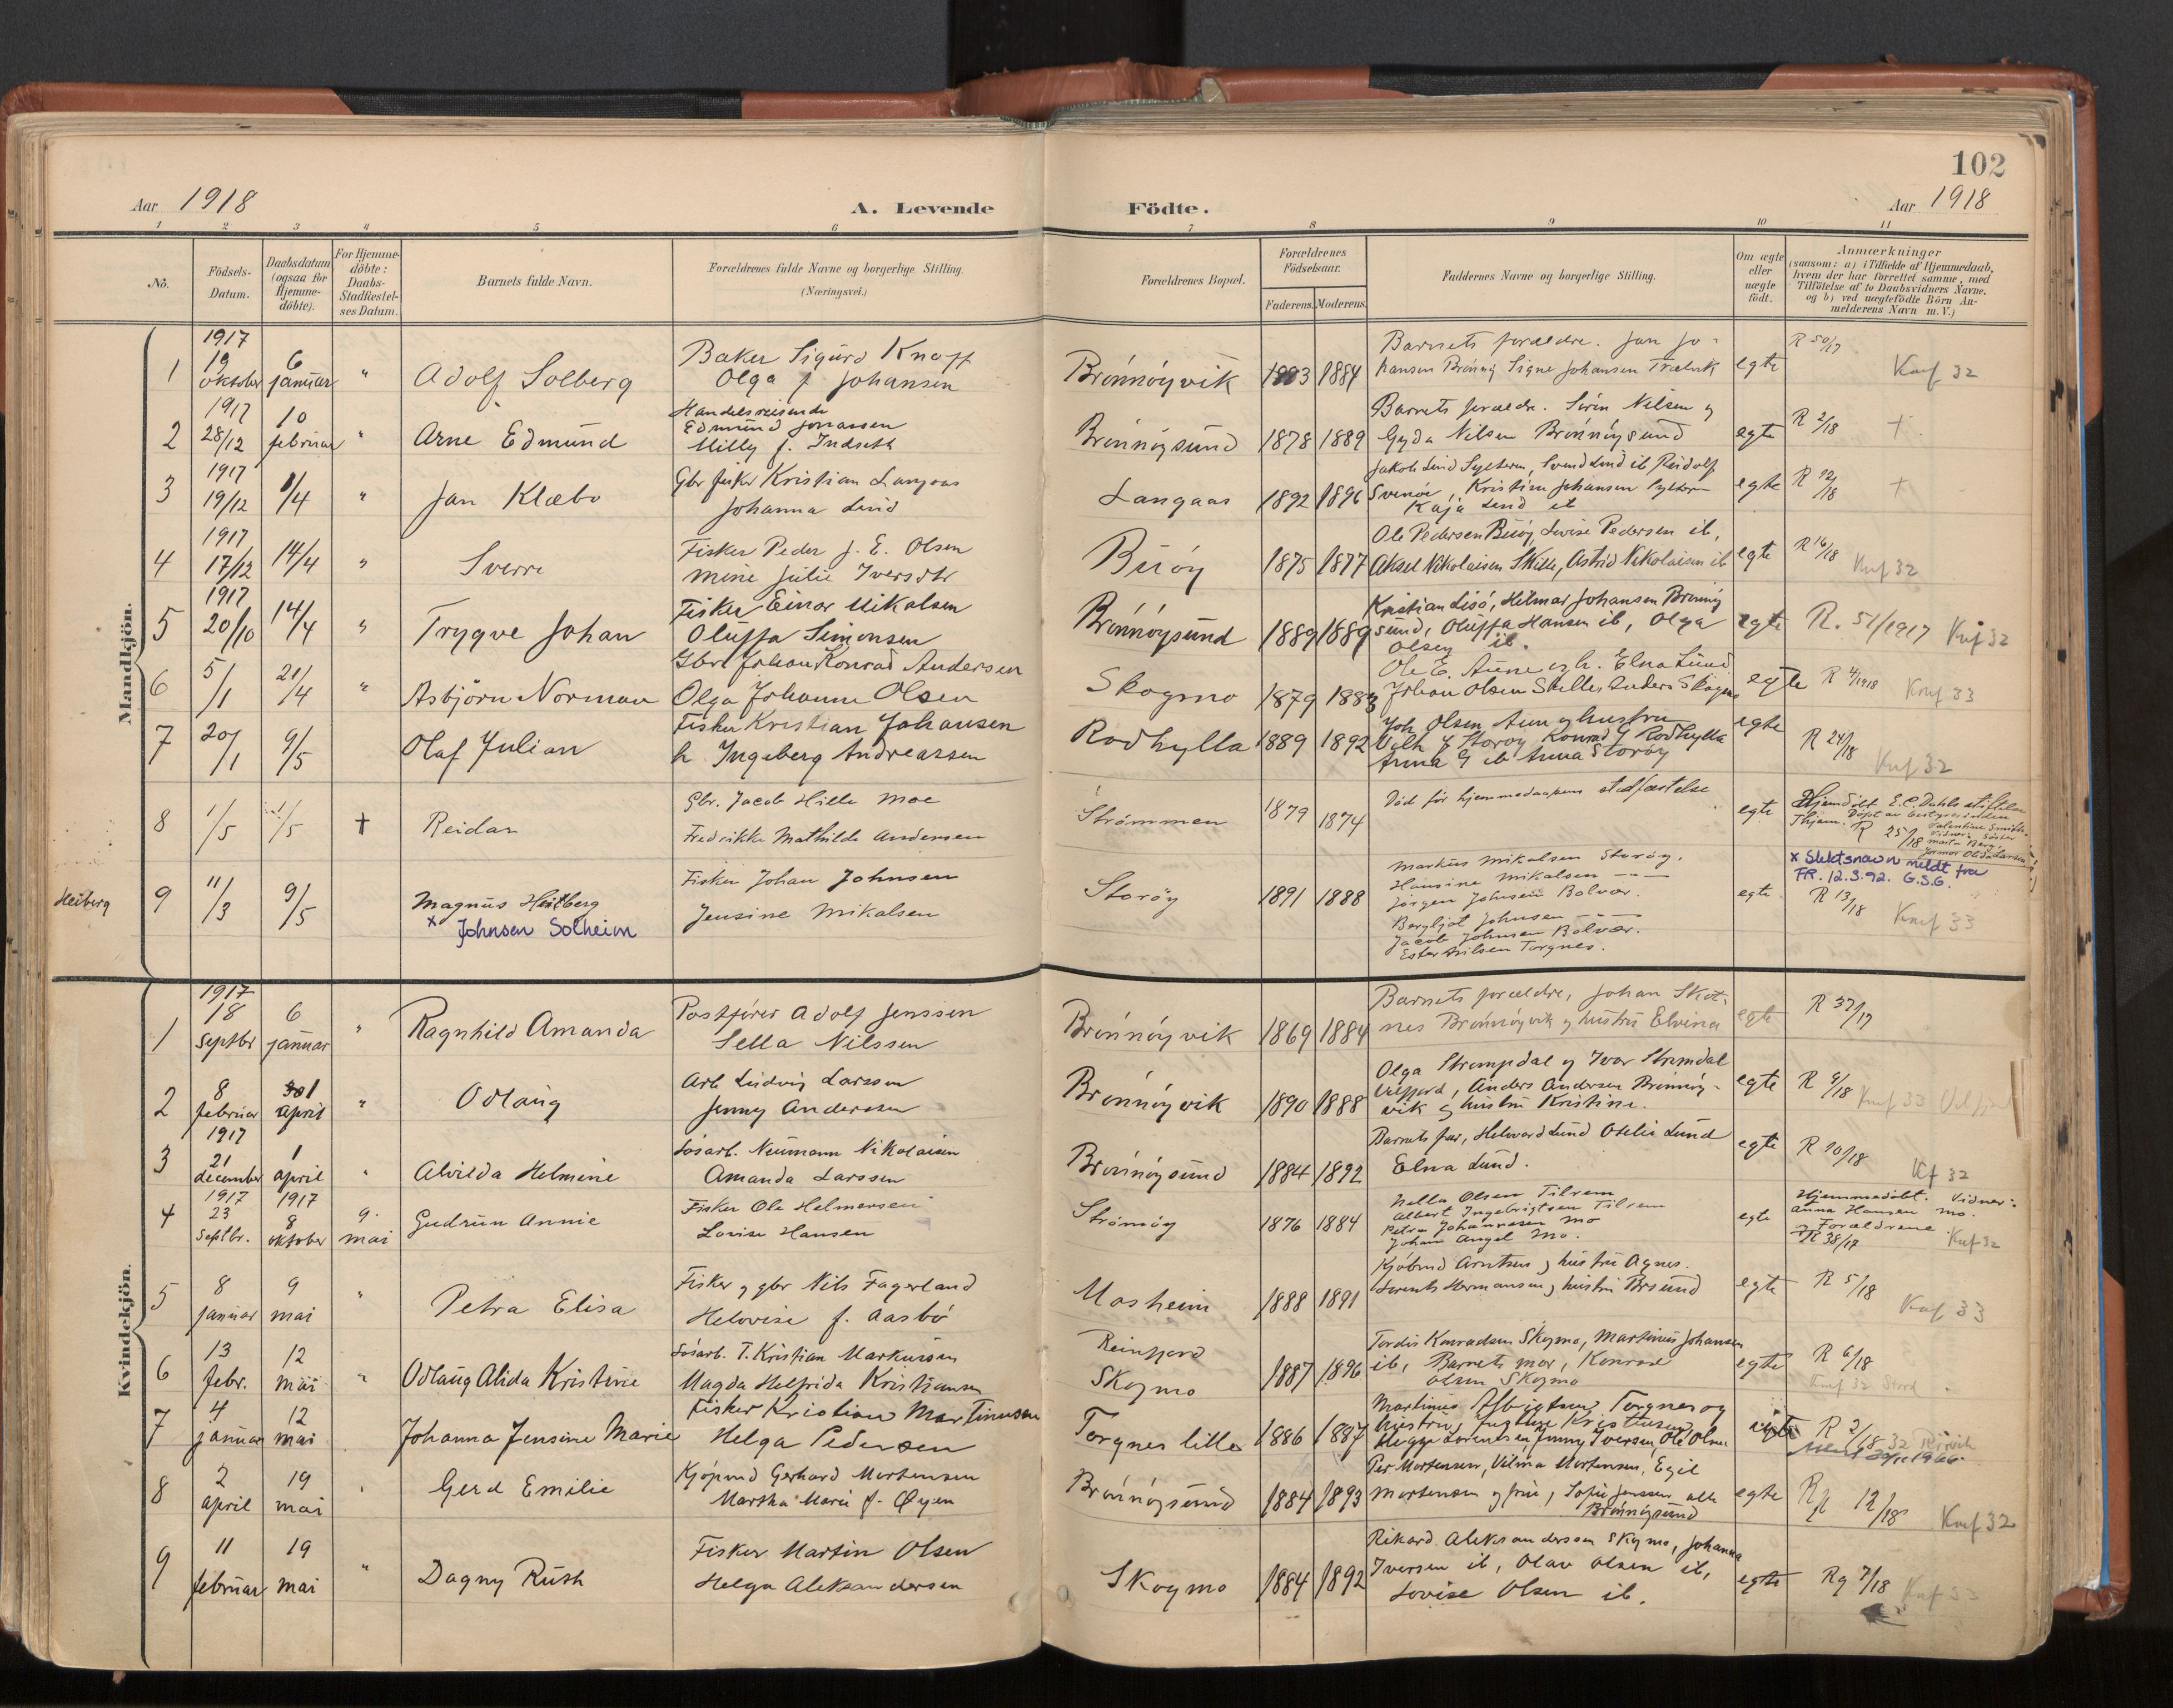 102
Aar 1918 A. Levende Födte. Aar 1918
1 2 3 4 5 6 7 8 9 10 11
No.
Födsels-Datum.
Daabsdatum (ogsaa for Hjemme-döbte).
For Hjemme-döbte: Daabs-Stadfæstel-ses Datum.
Barnets fulde Navn.
Forældrenes fulde Navne og borgerlige Stilling. (Næringsvei.)
Forældrenes Bopæl.
Forældrenes Födselsaar.
Faderens. Moderens.
Faddernes Navne og borgerlige Stilling.
Om ægte eller uægte födt.
Anmærkninger
(saasom: a) i Tilfælde af Hjemmedaab,
hvem der har forrettet samme, med
Tilföielse af to Daabsvidners Navne.
og b) ved uægtefödte Börn An-
melderens Navn m. V.)
Mandkjön.
1 1917 19 oktober 6 januar " Adolf Solberg
Baker Sigurd Knoff
Olga f Johansen
Brönnöyvik 1884
Barnets forældre. Jan Jo-
hansen Brönnöy Signe Johansen Trælvik
egte R 50/17 Knf 32
2 1917 28/12 10 februar " Arne Edmund
Handelsreisende
Edmund Jonassen
Milly f. Indseth
Brönnöysund 1878 1889
Barnets forældre. Sörin Nilsen og
Gyda Nilsen Brönnöysund
egte R 2/18 +
3 1917 19/12 1/4 " Jan Klæbo
Gbr fisker Kristian Langaas
Johanna Lind
Langaas 1892 1896
Jakob Lind Sylteren, Svend Lind ib Reidolf
Svenöe, Kristine Johansen Sylteren
Kaja Lind ib
egte R 12/18 +
4 1917 17/12 14/4 " Sverre
Fisker Peder J. E. Olsen
Mine Julie Iversdtr
Buöy 1875 1877
Ole Pedersen Buöy, Lovise Pedersen ib,
Aksel Nikolaisen Skille, Astrid Nikolaisen ib
egte R 16/18 Knf 32
5 1917 20/10 14/4 " Trygve Johan
Fisker Einar Mikalsen
Oluffa Simonsen
Brönnöysund 1889 1889
Kristian Lisö, Hilmar Johansen Brönnöy
sund, Oluffa Hansen ib, Olga
Olsen ib.
egte R. 51/1917 Knf 32
6 5/1 21/4 " Asbjörn Norman
Gbr. Johan Konrad Andersen
Olga Johanne Olsen
Skogmo 1879 1883
Ole E. Aune og h. Elna Lund
Johan Olsen Skille, Anders Skogmo
egte R 4/1918 Knf 33
7 20/1 9/5 Olaf Julian
Fisker Kristian Johansen
h Ingeberg Andreassen
Rodhylla 1889 1892
Joh. Olsen Aun og hustru
Vilh J Storöy Konrad G Rodhylla
Anna G ib Anna Storöy
egte R 24/18 Knf 32
8 1/5 1/5 † Reidar
Gbr. Jacob Hille Moe
Fredrikke Mathilde Andersen
Strömmen 1879 1874
Död för hjemmedaapens stadfæstelse
egte Hjemdöbt E. C. Dahls stiftelse
R 25/18
Heiberg
9 11/3 9/5 Magnus Heitberg
x Johnsen Solheim
Fisker Johan Johnsen
Jensine Mikalsen
Storöy 1891 1888
Markus Mikalsen Storöy.
Hansine Mikalsen — " —
Jörgen Johnsen Bolvær.
Bergljot Johnsen — " —
Jacob Johnsen Bolvær.
Ester Nilsen Torgnes.
egte.
x Slektsnavn meldt fra
FR. 12.3.92. G.S.G.
R 13/18 Knf 33
Kvindekjön.
1 1917 18 septbr 6 januar " Ragnhild Amanda
Postförer Adolf Jenssen
Sella Nilssen
Brönnöyvik 1869 1884
Barnets forældre, Johan Skot-
nes Brönnöyvik og hustru Elvina
egte R 37/17
2 8 februar 1 april " Odlaug
Arb Ludvig Larssen
Jenny Anderssen
Brönnöyvik 1890 1888
Olga Strompdal og Ivar Strompdal
Velfjord, Anders Andersen Brönnöy-
vik og hustru Kristine.
egte R 9/18 Knf 33 Velfjord
3 1917 21 december 1 april " Alvilda Helmine
Lösarb. Neumann Nikolaisen
Amanda Larssen
Brönnöysund 1884 1892
Barnets far, Helmard Lund Otelie Lund
Elna Lund.
egte R 10/18 Kf 32
4 1917 23 septbr. 1917 8 oktober 9 mai Gudrun Annie
Fisker Ole Helmersen
Lovise Hansen
Strömöy 1876 1884
Nella Olsen Tilrem
Albert Ingebrigtsen Tilrem
Petra Johannesen Mo
Johan Angel Mo.
egte
Hjemmedöbt. Vidner:
Anna Hansen Mo.
og Forældrene
R 38/17 Knf 32
5 8 januar 9 mai " Petra Elisa
Fisker og gbr Nils Fagerland
Helovise f. Aasbö
Mosheim 1888 1891
Kjöbmd Arntsen og hustru Agnes.
Lorents Hermansen og hustru Brsund
egte R 5/18 Knf 33
6 13 febr. 12 mai " Odlaug Alida Kristine
Lösarb. T. Kristian Markussen
Magda Helfrida Kristiansen
Reinfjord
Skogmo 1887 1896
Tordis Konradsen Skogmo, Martinus Johansen
ib, Barnets mor, Konrad
Olsen Skogmo
egte R 6/18
Knf 32 Stord
7 4 januar 12 mai Johanna Jensine Marie
Fisker Kristian Martinussen
Helga Pedersen
Torgnes lille 1886 1887
Martinus Albrigtsen, Torgnes og
Hegge Lorentsen Jenny Iversen, Ole Olsen
egte R 3/18 32 Rörvik
8 2 april 19 mai " Gerd Emilie
Kjöpmd Gerhard Mortensen
Martha Marie f. Øyen
Brönnöysund 1884 1893
Per Mortensen, Vilma Mortensen, Egil
Mortensen og frue, Sofie Jenssen alle
Brönnöysund
egte 12/18 Knf 32
9 11 februar 19 mai " Dagny Ruth
Fisker Martin Olsen
Helga Aleksandersen
Skogmo 1884 1892
Rikard Aleksandersen Skogmo, Johanna
Iversen ib, Olav Olsen ib,
Lovise Olsen ib.
egte Rg 7/18 Knf 33